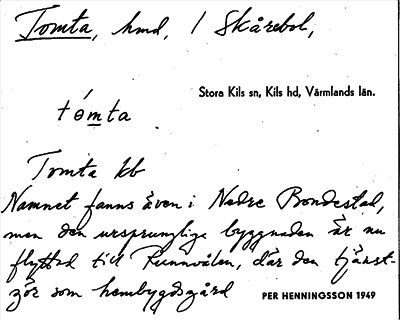 Tomta, hmd, i Skårebol,
Stora Kils sn, Kils hd, Värmlands län.
tómta
Tomta kb
Namnet fanns även i Nedre Bondestad,
men den ursprunglige byggnaden är nu
flyttad till Runnvålen, där den tjänst-
gör som hembygdsgård
PER HENNINGSSON 1949